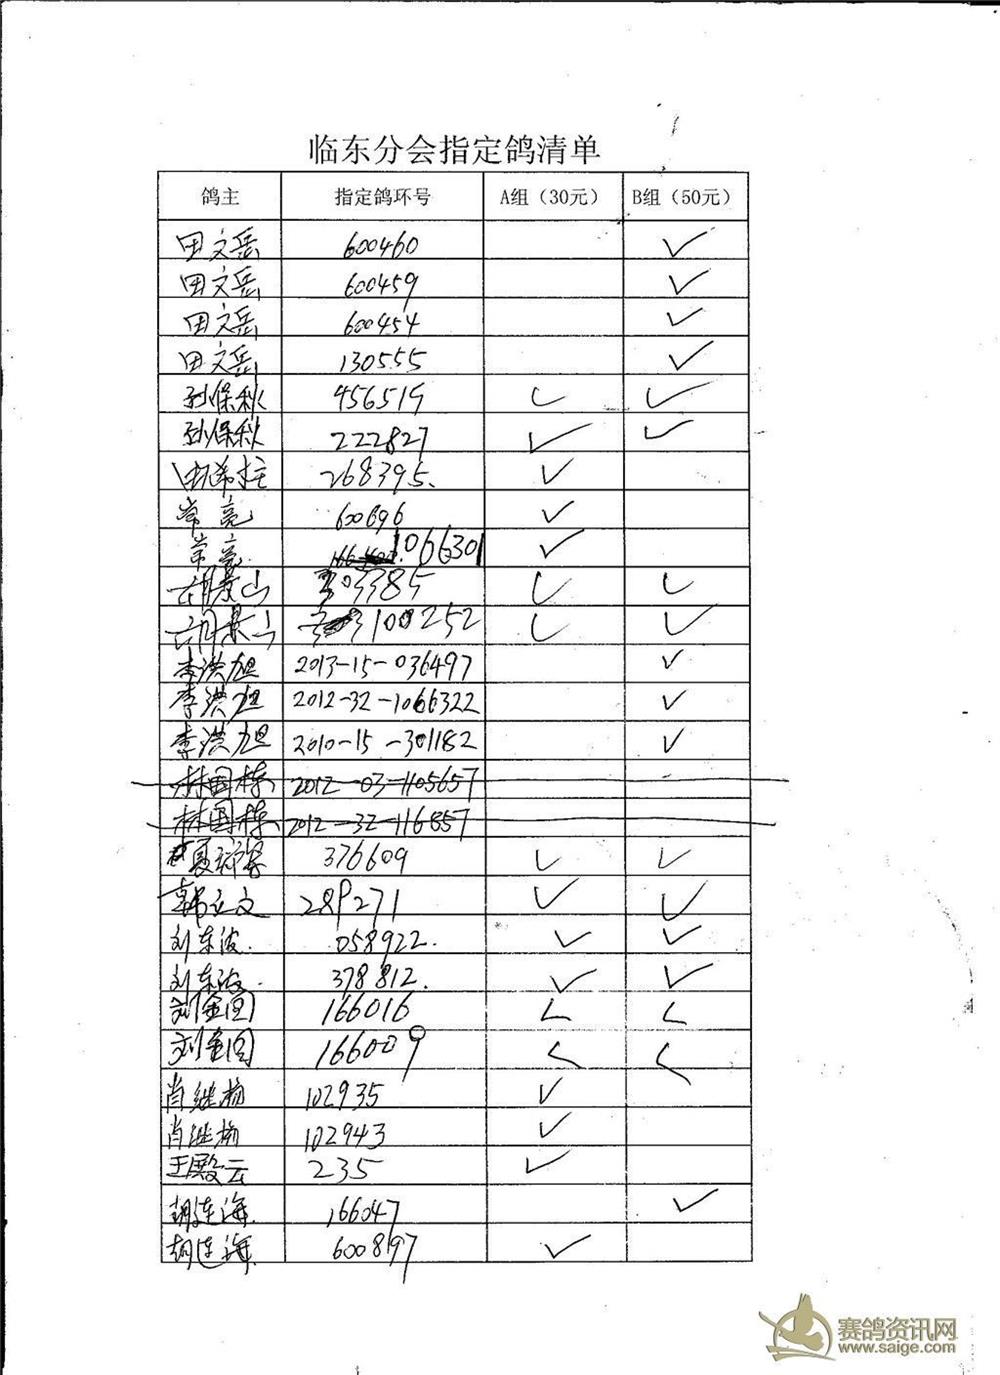 临东分会指定鸽清单
鸽主 指定鸽环号 A组（30元） B组（50元）
田文岳 600460 ✓
田文岳 600459 ✓
田文岳 600454 ✓
田文岳 130555 ✓
孙保秋 456519 ✓ ✓
孙保秋 222827 ✓ ✓
田希柱 268395. ✓
常亮 600696 ✓
常亮. 1066301 ✓
胡景山 303385 ✓ ✓
胡景山 100252 ✓ ✓
李洪旭 2013-15-036497 ✓
李洪旭 2012-32-1066322 ✓
李洪旭 2010-15-301182 ✓
林国栋 2012-03-1105657
林国栋 2012-32-116857
夏 376609 ✓ ✓
韩立文 289271 ✓ ✓
刘东波. 058922. ✓ ✓
刘东波. 378812. ✓ ✓
刘金回 166016 ✓ ✓
刘金回 166009 ✓ ✓
肖继杨 102935 ✓
肖继杨 102943 ✓
王殿云 235 ✓
胡连海. 166047 ✓
胡连海. 600897 ✓
赛鸽资讯网
www.saige.com